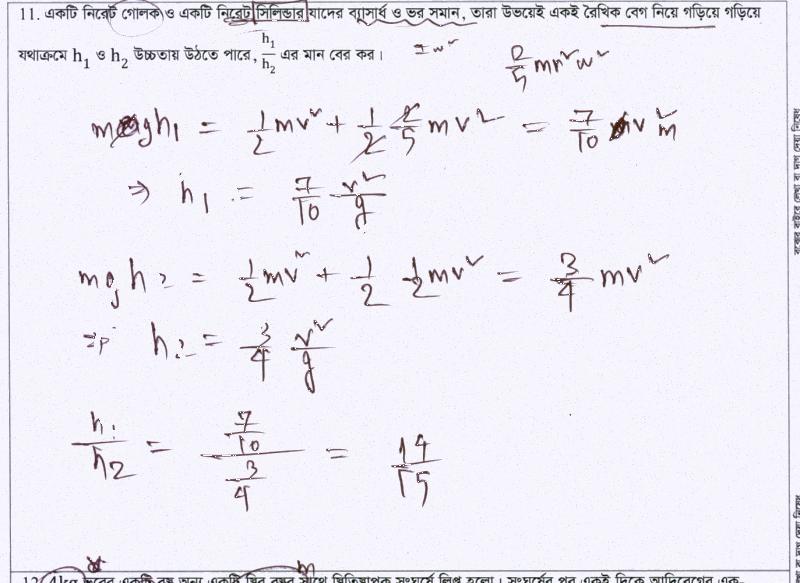 11. একটি নিরেট গোলক ও একটি নিরেট সিলিন্ডার যাদের ব্যাসার্ধ ও ভর সমান, তারা উভয়েই একই রৈখিক বেগ নিয়ে গড়িয়ে গড়িয়ে
যথাক্রমে h₁ ও h₂ উচ্চতায় উঠতে পারে, h₁/h₂ এর মান বের কর।
Iω² 2/5 mr²ω²
mgh₁ = 1/2 mv² + 1/2 2/5 mv² = 7/10 mv²
⇒ h₁ = 7/10 v²/g
mgh₂ = 1/2 mv² + 1/2 1/2 mv² = 3/4 mv²
⇒ h₂ = 3/4 v²/g
h₁/h₂ = 7/10 / 3/4 = 14/15
12. 4kg ভরের একটি বস্তু অন্য একটি স্থির বস্তুর সাথে স্থিতিস্থাপক সংঘর্ষে লিপ্ত হলো। সংঘর্ষের পর একই দিকে আদিবেগের এক